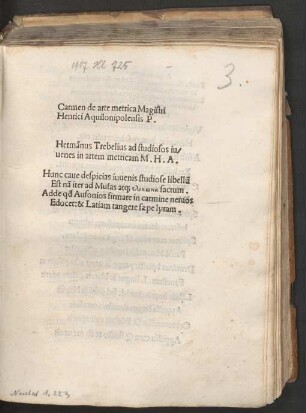 1917 XII 725
3.
Carmen de arte metrica Magistri
Henrici Aquilonipolensis P.
Hermãnus Trebelius ad studiosos iu/
uenes in artem metricam M. H. A.
Hunc caue despicias iuuenis studiose libellũ
Est nã iter ad Musas atq; ελικωνα sacrum.
Adde qđ Ausonios firmare in carmine neruos
Educet: & Latiam tangere sæpe lyram.